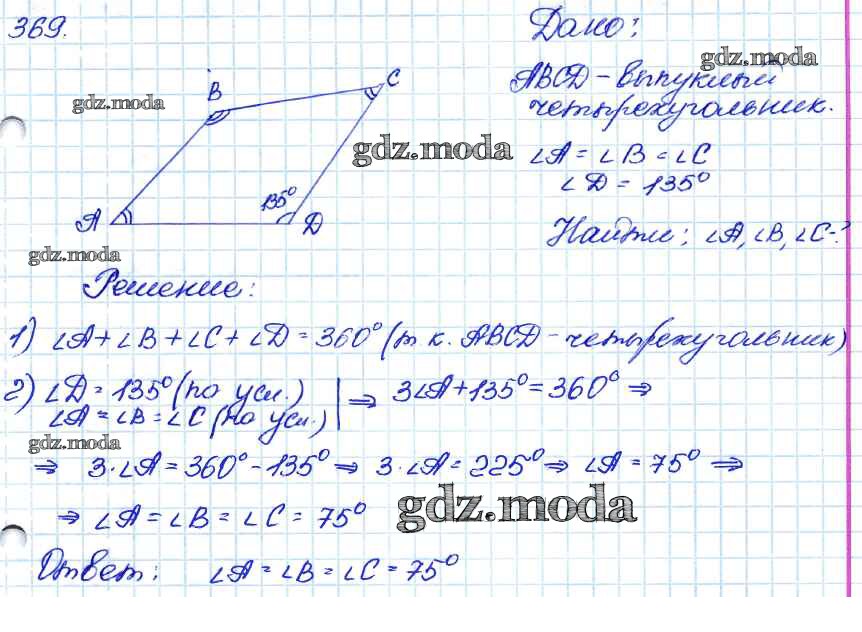 369.
Дано:
ABCD - выпуклый
четырехугольник.
∠A = ∠B = ∠C
∠D = 135°
Найти: ∠A, ∠B, ∠C-?
B
C
A
D
135°
gdz.moda
gdz.moda
gdz.moda
gdz.moda
Решение:
1) ∠A + ∠B + ∠C + ∠D = 360° (т.к. ABCD - четырехугольник)
2) ∠D = 135° (по усл.)
∠A = ∠B = ∠C (по усл.)
⇒ 3∠A + 135° = 360° ⇒
gdz.moda
⇒ 3·∠A = 360° - 135° ⇒ 3·∠A = 225° ⇒ ∠A = 75° ⇒
⇒ ∠A = ∠B = ∠C = 75°
gdz.moda
Ответ: ∠A = ∠B = ∠C = 75°